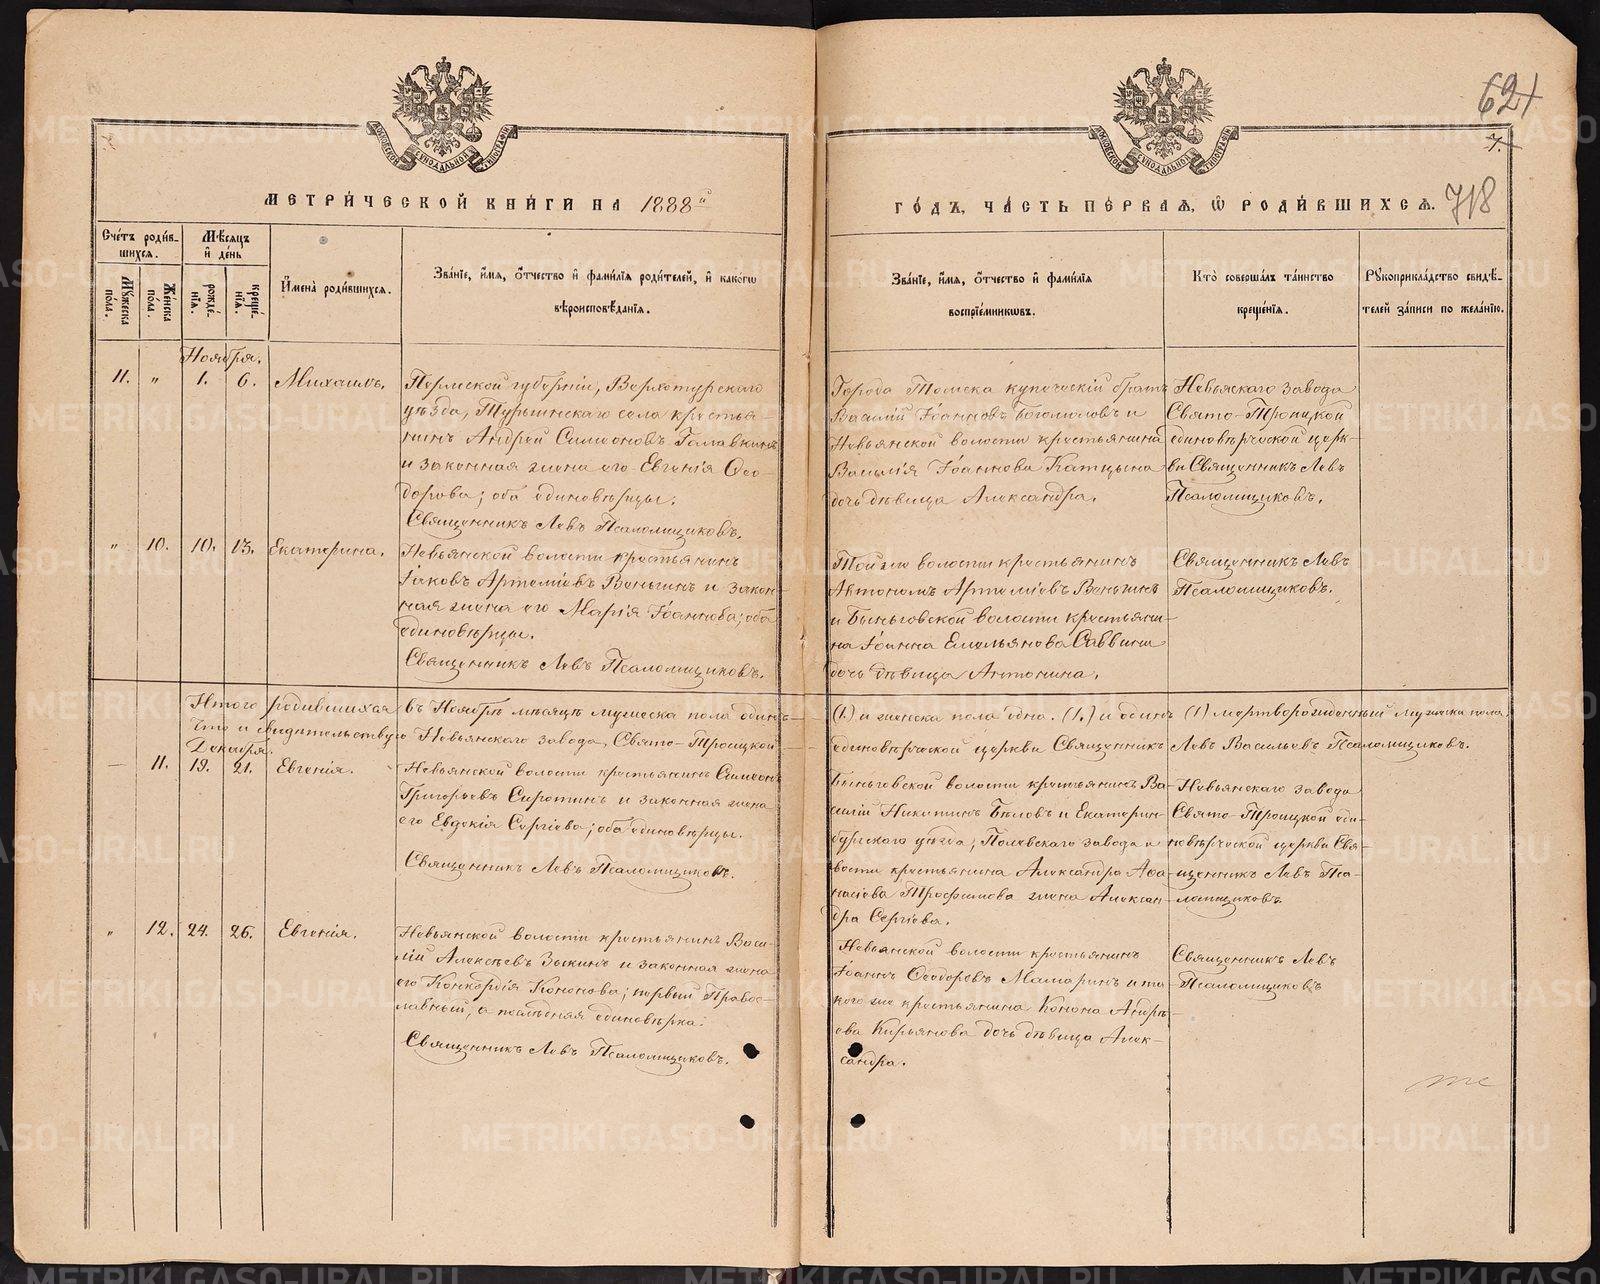 621
7.
МОСКОВСКОЙ СѴНОДАЛЬНОЙ ТИПОГРАФІИ
МОСКОВСКОЙ СѴНОДАЛЬНОЙ ТИПОГРАФІИ
МЕТРИ́ЧЕСКОЙ КНИ́ГИ НА 1888й
ГО́ДЪ, ЧА́СТЬ ПЕ́РВАѦ, Ѡ РОДИ́ВШИХСѦ. 718
Сче́тъ роди́в-
шихсѧ.
Мѣ́сѧцъ
и҆ де́нь
Мꙋ́жеска
по́ла.
Же́нска
по́ла.
рожде́-
нїѧ.
креще́-
нїѧ.
И҆мена̀ роди́вшихсѧ.
Зва́нїе, и҆́мѧ, ѻ҆́тчество и҆ фами́лїѧ роди́телей, и҆ како́гѡ
вѣроисповѣ́данїѧ.
Зва́нїе, и҆́мѧ, ѻ҆́тчество и҆ фами́лїѧ
воспрїе́мникѡвъ.
Кто̀ соверша́лъ та́инство
креще́нїѧ.
Рꙋкоприкла́дство свидѣ́-
телей за́писи по жела́нїю.
Ноября.
11. „ 1. 6. Михаилъ.
Пермской губерніи, Верхотурскаго
уѣзда, Турьинскаго села крестья-
нинъ Андрей Симеоновъ
и законная жена его Евгенія Ѳео-
дорова; оба единовѣрцы.
Священникъ Левъ Псаломщиковъ.
Города Томска купеческій братъ
Василій Іоанновъ Богомоловъ и
Невьянской волости крестьянина
Василія Іоаннова Катцына
дочь дѣвица Александра.
Невьянскаго завода
Свято-Троицкой
единовѣрческой церк-
ви Священникъ Левъ
Псаломщиковъ.
„ 10. 10. 13. Екатерина.
Невьянской волости крестьянинъ
Іаковъ Артеміевъ Ваньгинъ и закон-
ная жена его Марія Іоаннова; оба
единовѣрцы.
Священникъ Левъ Псаломщиковъ.
Той же волости крестьянинъ
Автономъ Артеміевъ Ваньгинъ
и Быньговской волости крестьяни-
на Іоанна Емельянова Саввина
дочь дѣвица Антонина.
Священникъ Левъ
Псаломщиковъ.
Итого родившихся въ Ноябрѣ мѣсяцѣ мужеска пола одинъ (1.) и женска пола одна. (1.) и одинъ (1) мертворожденный мужеска пола,
Что и свидѣтельствую Невьянскаго завода, Свято-Троицкой единовѣрческой церкви Священникъ Левъ Васильевъ Псаломщиковъ.
Декабря.
— 11. 19. 21. Евгенія.
Невьянской волости крестьянинъ Симеонъ
Григорьевъ Сиротинъ и законная жена
его Евдокія Сергіева; оба единовѣрцы.
Священникъ Левъ Псаломщиковъ.
Быньговской волости крестьянинъ Ва-
силій Никитинъ Бѣловъ и Екатерин-
бургскаго уѣзда, Полевскаго завода и
вости крестьянина Александра Аѳа-
насіева Трофимова жена Алексан-
дра Сергіева.
Невьянскаго завода
Свято-Троицкой еди-
новѣрческой церкви Свя-
щенникъ Левъ Пса-
ломщиковъ.
„ 12. 24. 26. Евгенія.
Невьянской волости крестьянинъ Васи-
лій Алексѣевъ Зыкинъ и законная жена
его Конкордія Кононова; первый Право-
славный, а послѣдняя единовѣрка.
Священникъ Левъ Псаломщиковъ.
Невьянской волости крестьянинъ
Іоаннъ Ѳеодоровъ Мамаринъ и та-
кого же крестьянина Конона Андрѣ-
ева Кирьянова дочь дѣвица Алек-
сандра.
Священникъ Левъ
Псаломщиковъ
METRIKI.GASO-URAL.RU